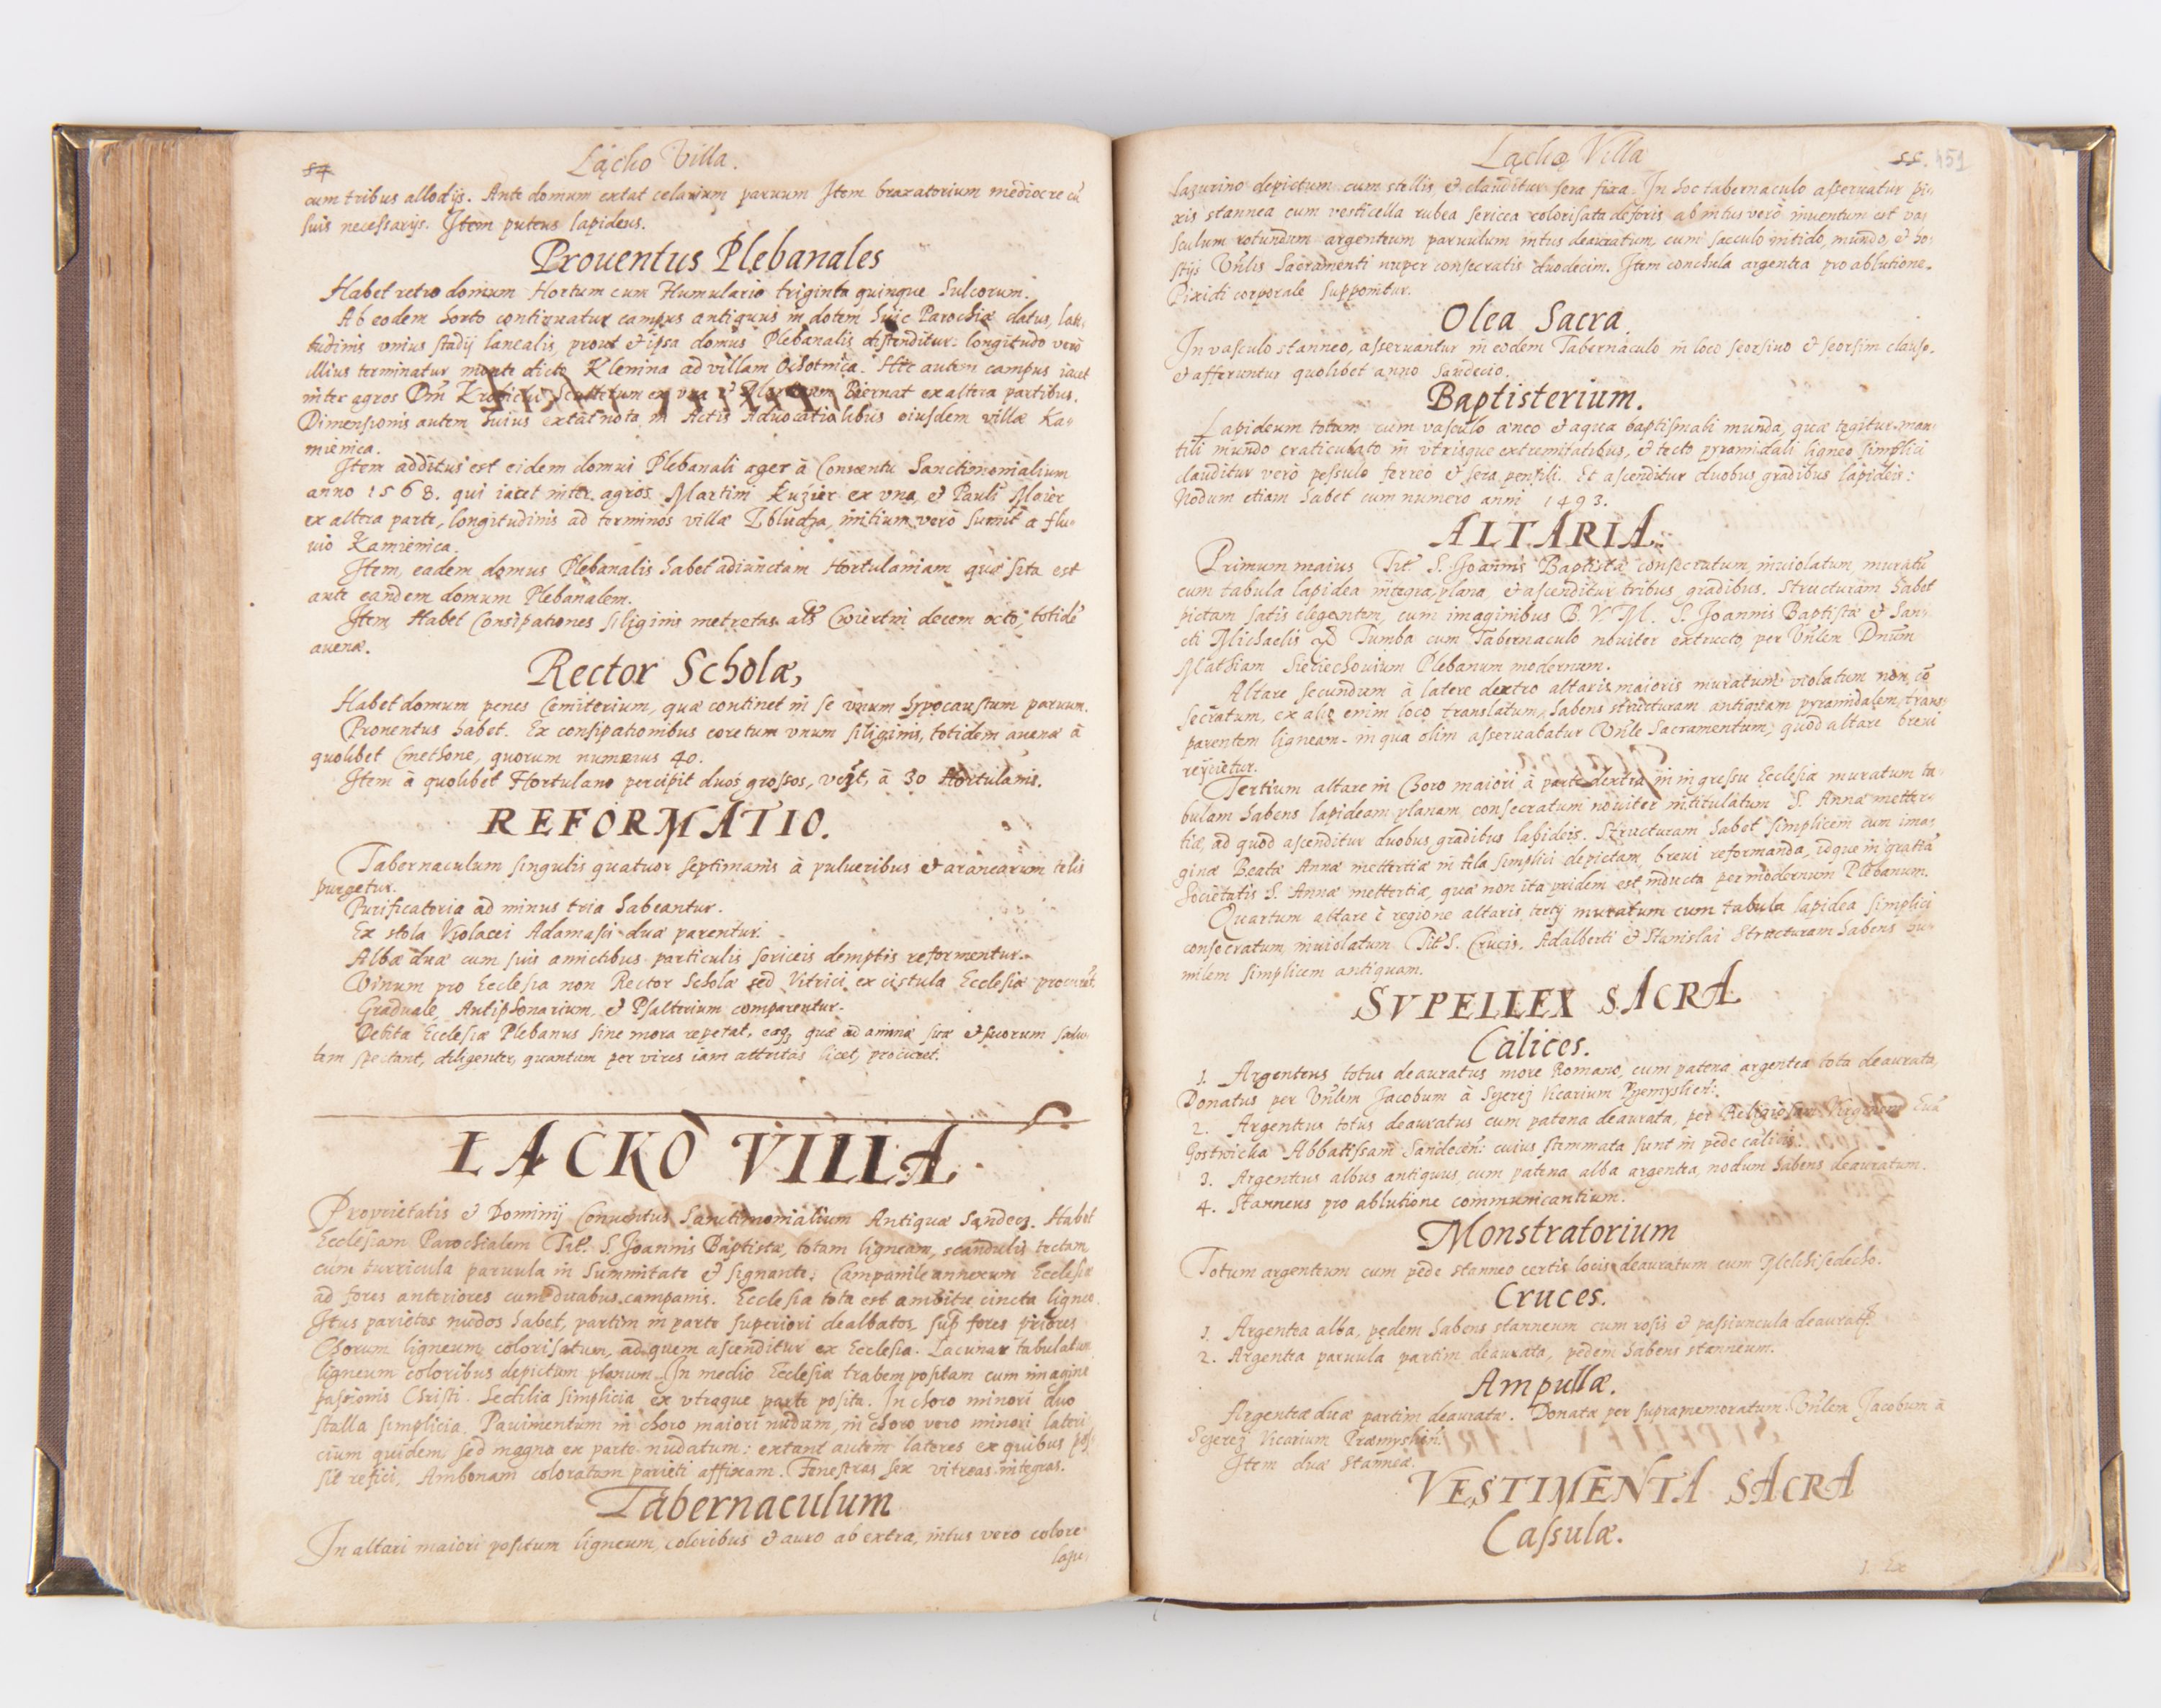 54
Lącko Villa.
cum tribus allodijs. Ante domum extat celarium paruum Item braxatorium mediocre cū
suis necessarijs. Item puteus lapideus.
Prouentus Plebanales
Habet retro domum Hortum cum Humulario triginta quinque Sulcorum.
Ab eodem horto continuatur campus antiquus in dotem huic Parochiæ datus, lati,
tudinis vnius stadij lanealis, prout et ipsa domus Plebanalis distenditur: longitudo vero
illius terminatur monte dicto Klenina ad villam Ochotnica. Hic autem campus iacet
inter agros Dn̄i Scultetum ex vna et Biernat ex altera partibus.
Dimensionis autem huius extat nota in Actis Aduocatialibus eiusdem villæ Ka=
mienica.
Item additus est eidem domui Plebanali ager à Conuentu Sanctimonialium
anno 1568. qui iacet inter agros Martini Kuzier ex vna, et Pauli Moier
ex altera parte, longitudinis ad terminos villæ Zbludza, initium verò sumit a flu=
uio Kamienica.
Item, eadem domus Plebanalis habet adiunctam Hortulaniam quæ sita est
ante eandem domum Plebanalem.
Item Habet Consipationes siliginis metretas als Cwiertni decem octo, totidē
auenæ.
Rector Scholæ,
Habet domum penes Cemiterium, quæ continet in se vnum hypocaustum paruum.
Prouentus habet. Ex consipationibus coretum vnum siliginis, totidem auenæ à
quolibet Cmethone, quorum numerus 40.
Item à quolibet Hortulano percipit duos grossos, à 30 Hortulanis.
REFORMATIO.
Tabernaculum singulis quatuor septimanis à pulueribus et aranearum telis
purgetur.
Purificatoria ad minus tria habeantur.
Ex stola Violacei Adamasci duæ parentur.
Albæ duæ cum suis amictibus particulis sericeis demptis reformentur.
Vinum pro Ecclesia non Rector Scholæ sed Vitrici ex cistula Ecclesiæ procurēt.
Graduale, Antiphonarium, et Psalterium comparentur.
Debita Ecclesiæ Plebanus sine mora repetat, eaq; quæ ad animæ suæ et suorum salu
tem spectant, diligenter, quantum per vires iam attritas licet, procuret.
LACKO VILLA
Proprietatis et Dominij Conuentus Sanctimonialium Antiquæ Sandecz. Habet
Ecclesiam Parochialem Tit. S. Joannis Baptistæ, totam ligneam, scandulis tectam,
cum turricula paruula in summitate et signante. Campanile annexum Ecclesiæ
ad fores anteriores cum duabus campanis. Ecclesia tota est ambitu cincta ligneo.
Itus parietes nudos habet, partim in parte superiori dealbatos, sup̄ fores priores
Chorum ligneum colorisatum, ad quem ascenditur ex Ecclesia. Lacunar tabulatum
ligneum coloribus depictum planum. In medio Ecclesiæ trabem positam cum imagine
passionis Christi. Sectilia simplicia ex vtraque parte posita. In choro minori duo
stalla simplicia. Pauimentum in choro maiori nudum, in choro vero minori lateri
cium quidem, sed magna ex parte nudatum: extant autem lateres ex quibus pos
sit refici, Ambonam coloratam parieti affixam. Fenestras sex vitreas integras.
Tabernaculum
In altari maiori positum ligneum, coloribus et auro ab extra, intus vero colore
lasu,
Lącko Villa
55. 451
lasurino depictum cum stellis, et clauditur sera fixa. In hoc tabernaculo asseruatur pi,
xis stannea cum vesticella rubea sericea colorisata deforis, ab intus verò inuentum est va,
sculum rotundum argenteum paruulum intus deauratum, cum sacculo nitido, mundo, et ho,
stijs Vn̄lis Sacramenti nuper consecratis duodecim. Item conchula argentea pro ablutione.
Pixidi corporale supponitur.
Olea Sacra.
In vasculo stanneo, asseruantur in eodem Tabernaculo in loco seorsiuo et seorsim clauso.
et afferuntur quolibet anno Sandecio.
Baptisterium.
Lapideum totum cum vasculo æneo et aqua baptismali munda, quæ tegitur man,
tili mundo craticulato in vtrisque extremitatibus, et tecto pyramidali ligneo simplici
clauditur verò pessulo ferreo et sera pensili. Et ascenditur duobus gradibus lapideis:
Nodum etiam habet cum numero anni 1493.
ALTARIA.
Primum maius Tit S. Joannis Baptistæ consecratum, inuiolatum, muratū
cum tabula lapidea integra, plana, et ascenditur tribus gradibus. Structuram habet
pictam satis elegantem, cum imaginibus B. V. M. S. Joannis Baptistæ et San,
cti Michaelis Tumba cum Tabernaculo nouiter extructo, per Vn̄lem Dnūm
Mathiam Sieciechouium Plebanum modernum.
Altare secundum à latere dextro altaris maioris muratum violatum non cō
secratum, ex alio enim loco translatum, habens structuram antiquam pyramidalem, trans,
parentem ligneam. in qua olim asseruabatur Vn̄le Sacramentum, quod altare breui
reijcietur.
Tertium altare in Choro maiori à parte dextra in ingressu Ecclesiæ muratum ta,
bulam habens lapideam, planam, consecratum nouiter intitulatum S. Annæ metter,
tiæ, ad quod ascenditur duobus gradibus lapideis. Structuram habet simplicem cum ima,
gine Beatæ Annæ mettertiæ in tela simplici depictam, breui reformanda, idque in gratiā
Societatis S. Annæ mettertiæ, quæ non ita pridem est inducta per modernum Plebanum.
Quartum altare è regione altaris tertij muratum cum tabula lapidea simplici
consecratum, inuiolatum Tit S. Crucis, Adalberti et Stanislai Structuram habens hu,
milem simplicem antiquam.
SVPELLEX SACRA
Calices.
1. Argenteus totus deauratus more Romano, cum patena argentea tota deaurata,
Donatus per Vn̄lem Jacobum à Vicarium
2. Argenteus totus deauratus cum patena deaurata, per Religiosam Virginem Euā
Gostwicka Abbatissam Sandecen: cuius stemmata sunt in pede calicis.
3. Argenteus albus antiquus, cum patena alba argentea, nodum habens deauratum.
4. Stanneus pro ablutione communicantium.
Monstratorium
Totum argenteum cum pede stanneo certis locis deauratum cum Melchisedecho.
Cruces.
1. Argentea alba, pedem habens stanneum cum rosis et passiuncula
2. Argentea paruula partim deaurata, pedem habens stanneum.
Ampullæ.
Argenteæ duæ partim deauratæ. Donatæ per supramemoratum Vn̄lem Jacobum à
Vicarium
Item duæ stanneæ.
VESTIMENTA SACRA
Cassulæ.
1. Ex